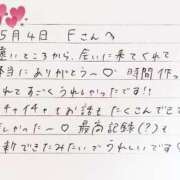 5月4日 Fさんへ
遠いところから、会いに来てくれて
本当にありがとう〜♡ 時間作っ
てすごくうれしかったです!!
チャイチャもお話もたくさんできて
しかった〜♡ 最高記録(?)も
新できたみたいでうれしいです